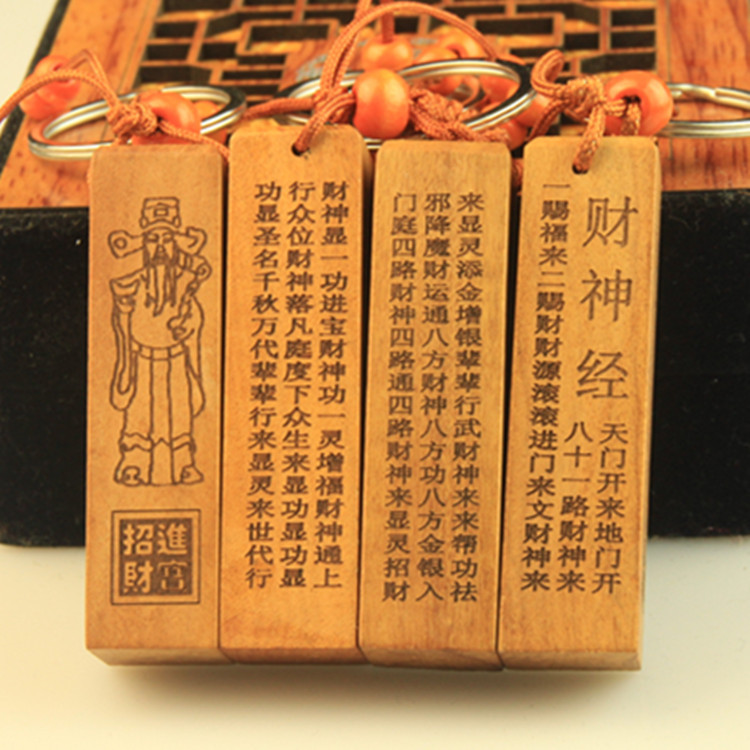 财神经
天门开来地门开
八十一路财神来
一赐福来二赐财财源滚滚进门来文财神来
来显灵添金增银辈辈行武财神来来帮功祛
邪降魔财运通八方财神八方功八方金银入
门庭四路财神四路通四路财神来显灵招财
财神显一功进宝财神功一灵增福财神通上
行众位财神落凡庭度下众生来显功显功显
功显圣名千秋万代辈辈行来显灵来世代行
招財
進寶